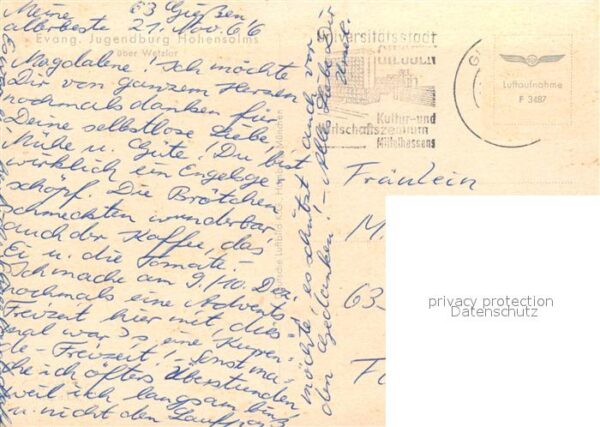 Meine 63 Gießen
allerbeste 21. Nov. 66
Evang. Jugendburg Hohensolms
über Wetzlar
Magdalene! Ich möchte
Dir von ganzem Herzen
nochmals danken für
Deine selbstlose Liebe,
Mühe u. Güte! Du bist
wirklich ein Engelge
schöpf. Die Brötchen
schmeckten wunderbar
auch der Kaffee, das
Ei u. die Tomate. -
Ich mache am 9./10. Dez.
nochmals eine Advents-
Freizeit hier mit, dies-
mal war es eine
de-Freizeit! Sonst ma-
che ich öfters Überstunden,
weil ich langsam bin
u. nicht den
möchte! es schützt auch vor
den Gedanken! - Alles Liebe Dir
Universitätsstadt
GIESSEN
Kultur- und
Wirtschaftszentrum
Mittelhessens
Luftaufnahme
F 3487
Fräulein
M.
63-
privacy protection
Datenschutz